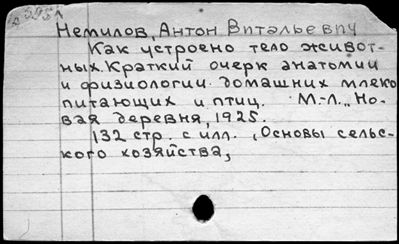 Немилов, Антон Витальевич
Как устроено тело живот-
ных. Краткий очерк анатомии
и физиологии домашних млеко
питающих и птиц. М.-Л., Но-
вая деревня, 1925.
132 стр. с илл. (Основы сельс-
кого хозяйства)